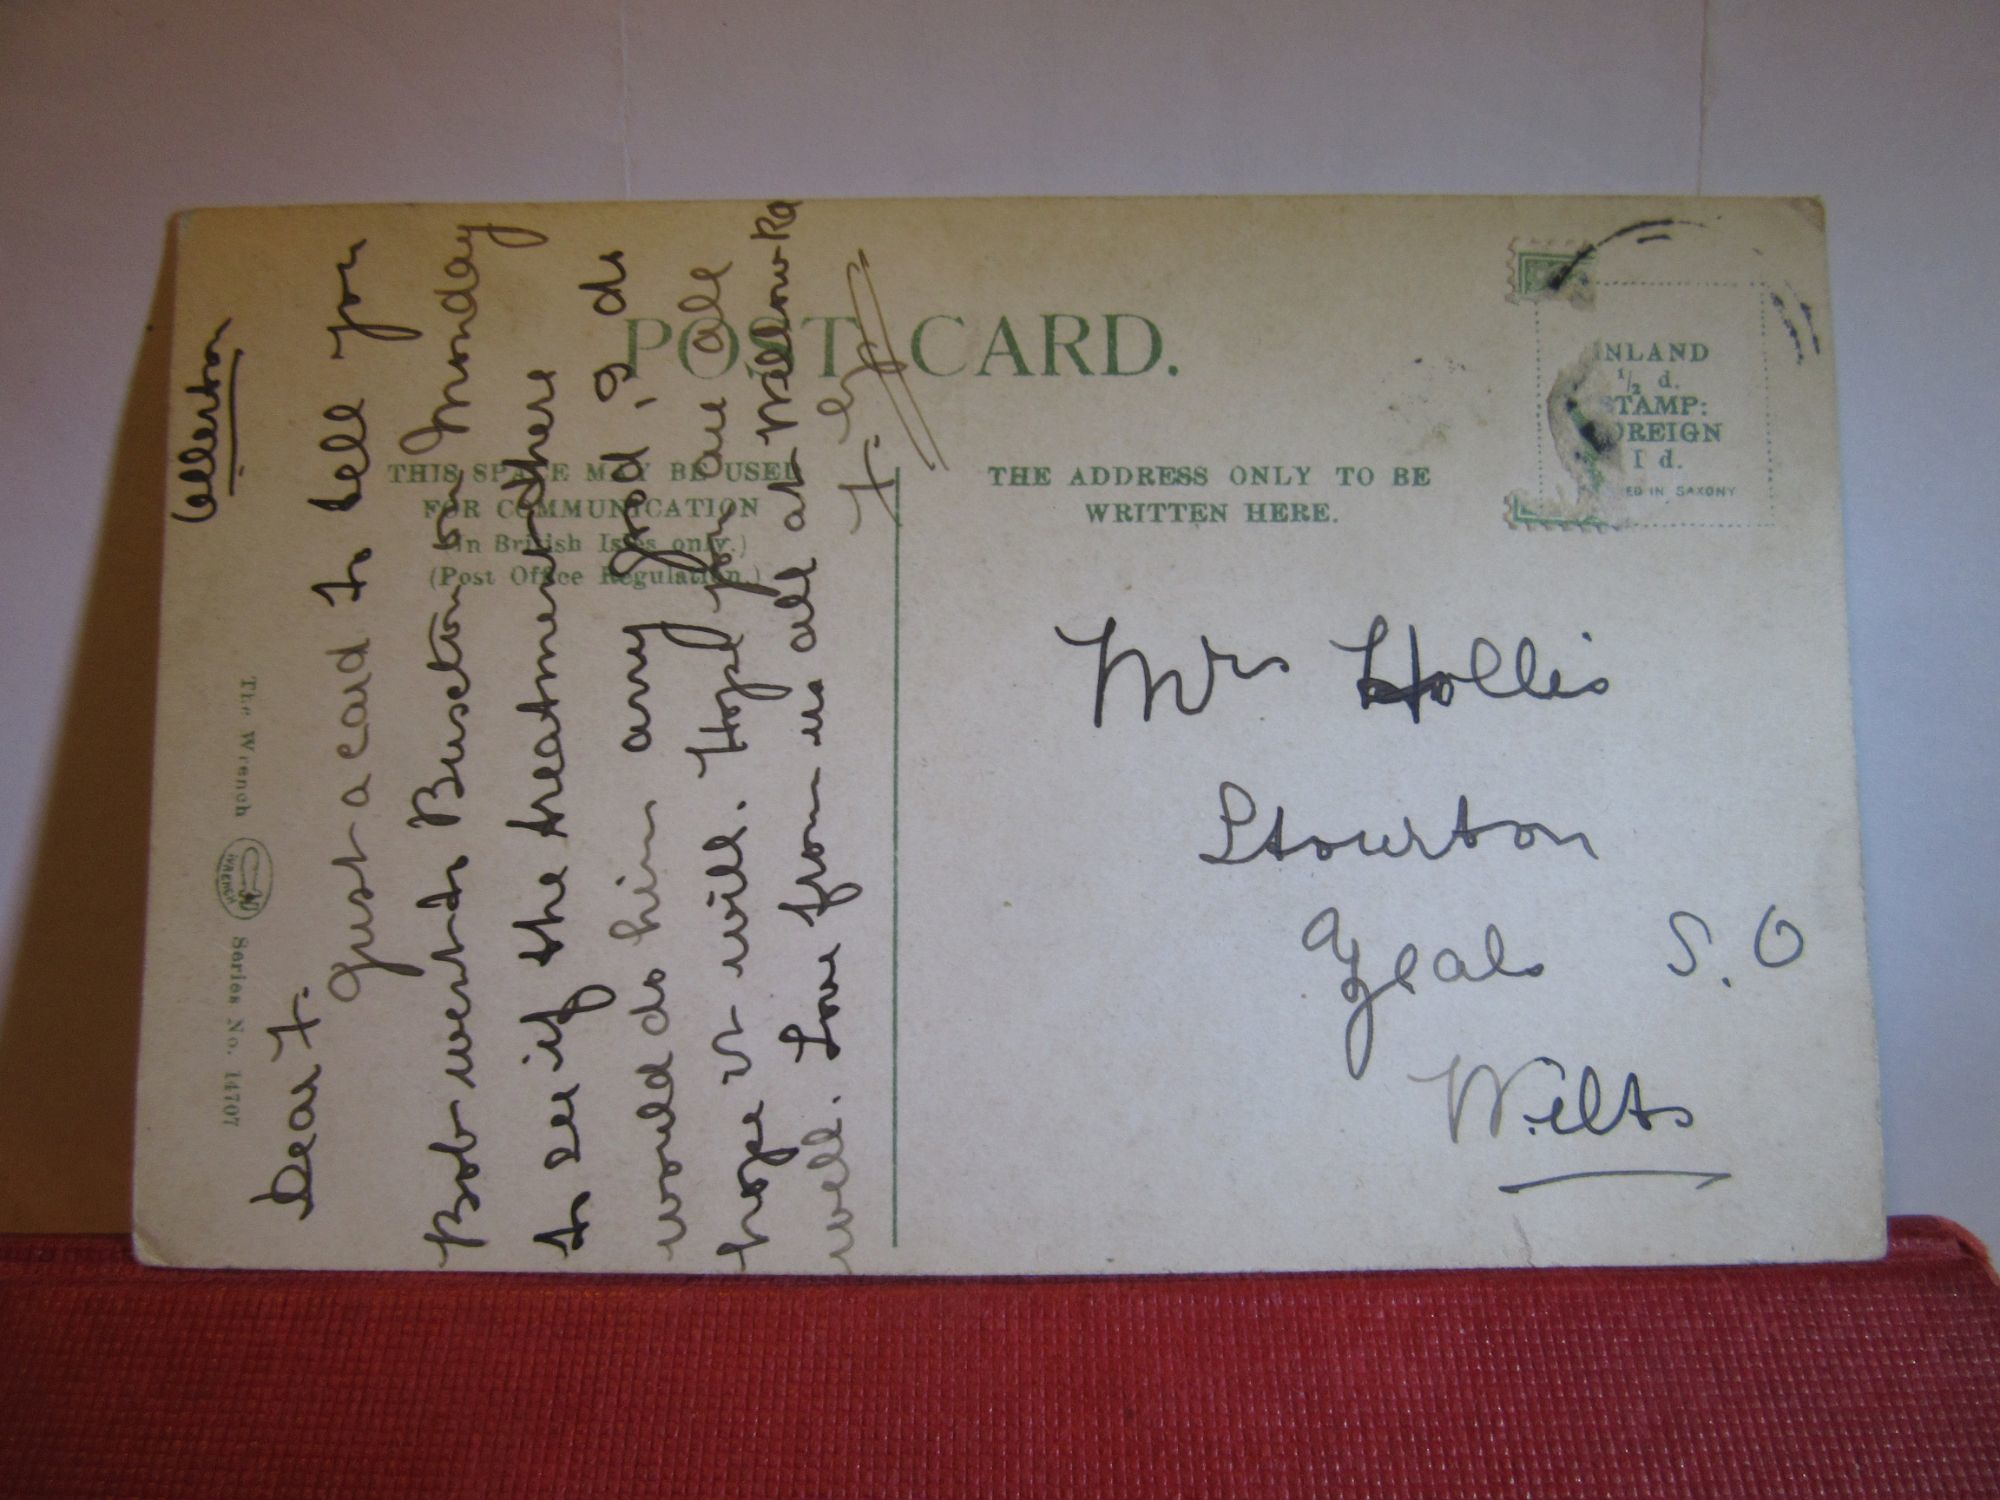 Allerton
Dear F.
Just a card to tell you
Bob went to Buxton on Monday
to see if the treatment there
would do him any good, I do
hope it will. Hope you are all
well. Love from us all at
F.
POST CARD.
THIS SPACE MAY BE USED
FOR COMMUNICATION
(In British Isles only.)
(Post Office Regulation.)
THE ADDRESS ONLY TO BE
WRITTEN HERE.
INLAND
½ d.
STAMP:
FOREIGN
1 d.
ED IN SAXONY
Mrs Hollis
Stourton
Zeals S.O
Wilts
The Wrench WRENCH Series No. 14707